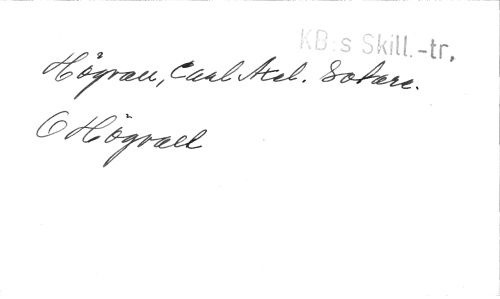 KB:s Skill.-tr.
Högvall, Carl Axel. Sotare.
Högvall